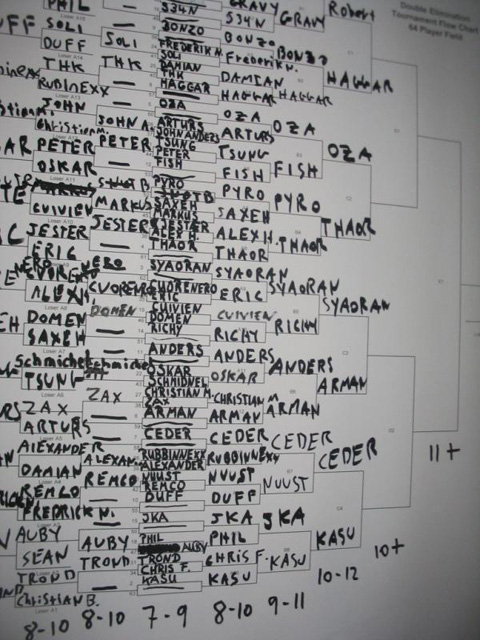 Double Elimination
Tournament Flow Chart
64 Player Field
PHIL S34N GRAVY GRAVY Robert
SOLI BONZO S34N
DUFF SOLI FREDERIK N. BONZO BONZO
THK THK SOLI Frederik N. HAGGAR
DAMIAN DAMIAN
RUBINEXX THK HAGGAR HAGGAR
HAGGAR
JOHN OZA OZA OZA
Christian M. JOHN A. ARTURS ARTURS OZA
PETER PETER JOHN ANDERS TSUNG
TSUNG
OSKAR PETER FISH FISH
FISH
PYRO PYRO PYRO THAOR
CUIVIEN MARKUS SAXEH SAXEH
MARKUS
JESTER JESTER JESTER ALEX H. THAOR
ALEX H.
ERIC THAOR THAOR
NERO NERO SYAORAN SYAORAN SYAORAN
ERIC ERIC SYAORAN
ALEX H.
DOMEN DOMEN CUIVIEN CUIVIEN RICHY
DOMEN
SAXEH RICHY RICHY
ANDERS ANDERS ANDERS
Schmichel OSKAR OSKAR ARMAN
TSUNG SCHMIDNEL
ZAX ZAX CHRISTIAN M. CHRISTIAN M ARMAN
ZAX
ARTURS ARMAN ARMAN
ALEXANDER CEDER CEDER CEDER CEDER 11+
DAMIAN ALEXAN. RUBBINNEXX RUBBINNEXX
ALEXANDER
REMCO REMCO NUUST NUUST NUUST
REMCO
FREDRICK N. DUFF DUFF
JKA JKA JKA
AUBY AUBY PHIL AUBY PHIL KASU
SEAN TROND TROND CHRIS F. KASU 10+
TROND CHRIS F.
Christian B. KASU KASU 10-12
8-10 8-10 7-9 8-10 9-11